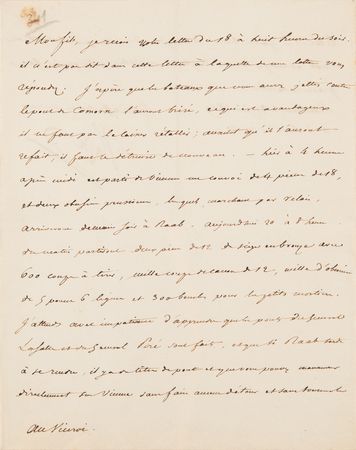 Mon fils, je reçois votre lettre du 18 à huit heures du soir.
il n'est pas dit dans cette lettre à laquelle de mes lettres vous
répondez. J'espère que les bateaux que vous aurez jettés contre
le pont de Comorn l'auront brisé, ce qui est avantageux
il ne faut pas le laisser rétablir; aussitôt qu'il l'auront
refait, il faut le détruire de nouveau. — hier à 4 heures
après midi est parti de Vienne un convoi de 4 pièces de 18,
et deux obusiers prussiens, lequel, marchant par relais,
arrivera demain soir à Raab. aujourd'hui 20 à 8 heures
du matin partiront deux pièces de 12 de siège en bronze avec
600 coups à tirer, mille coups de canon de 12, mille d'obusiers
de 5 pouces 6 lignes et 300 bombes pour les petits mortiers.
J'attends avec impatience d'apprendre que les ponts du Général
Lasalle et du Général Piré sont faits, et que si Raab tarde
à se rendre, il y a des têtes de pont et que vous pouvez manœuvrer
directement sur Vienne sans faire aucun détour et sans tourner le
Au Viceroi.